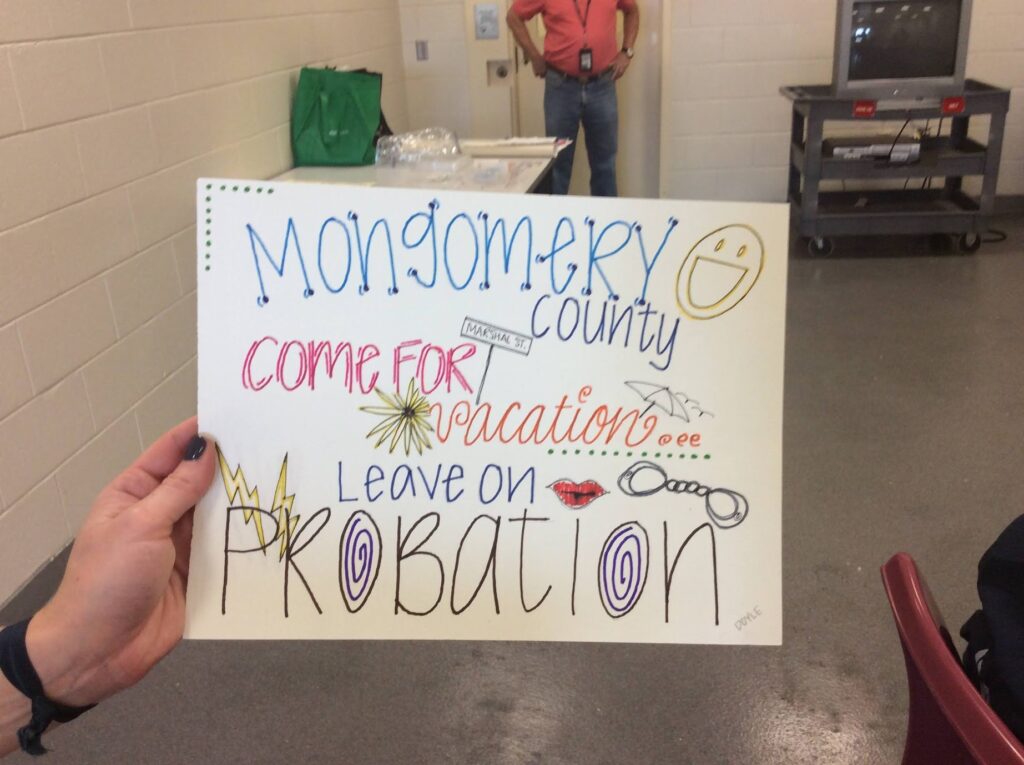 MongomERY
county
MARSHAL ST.
COME FOR
vacation...
Leave on
PROBATION
DOYLE